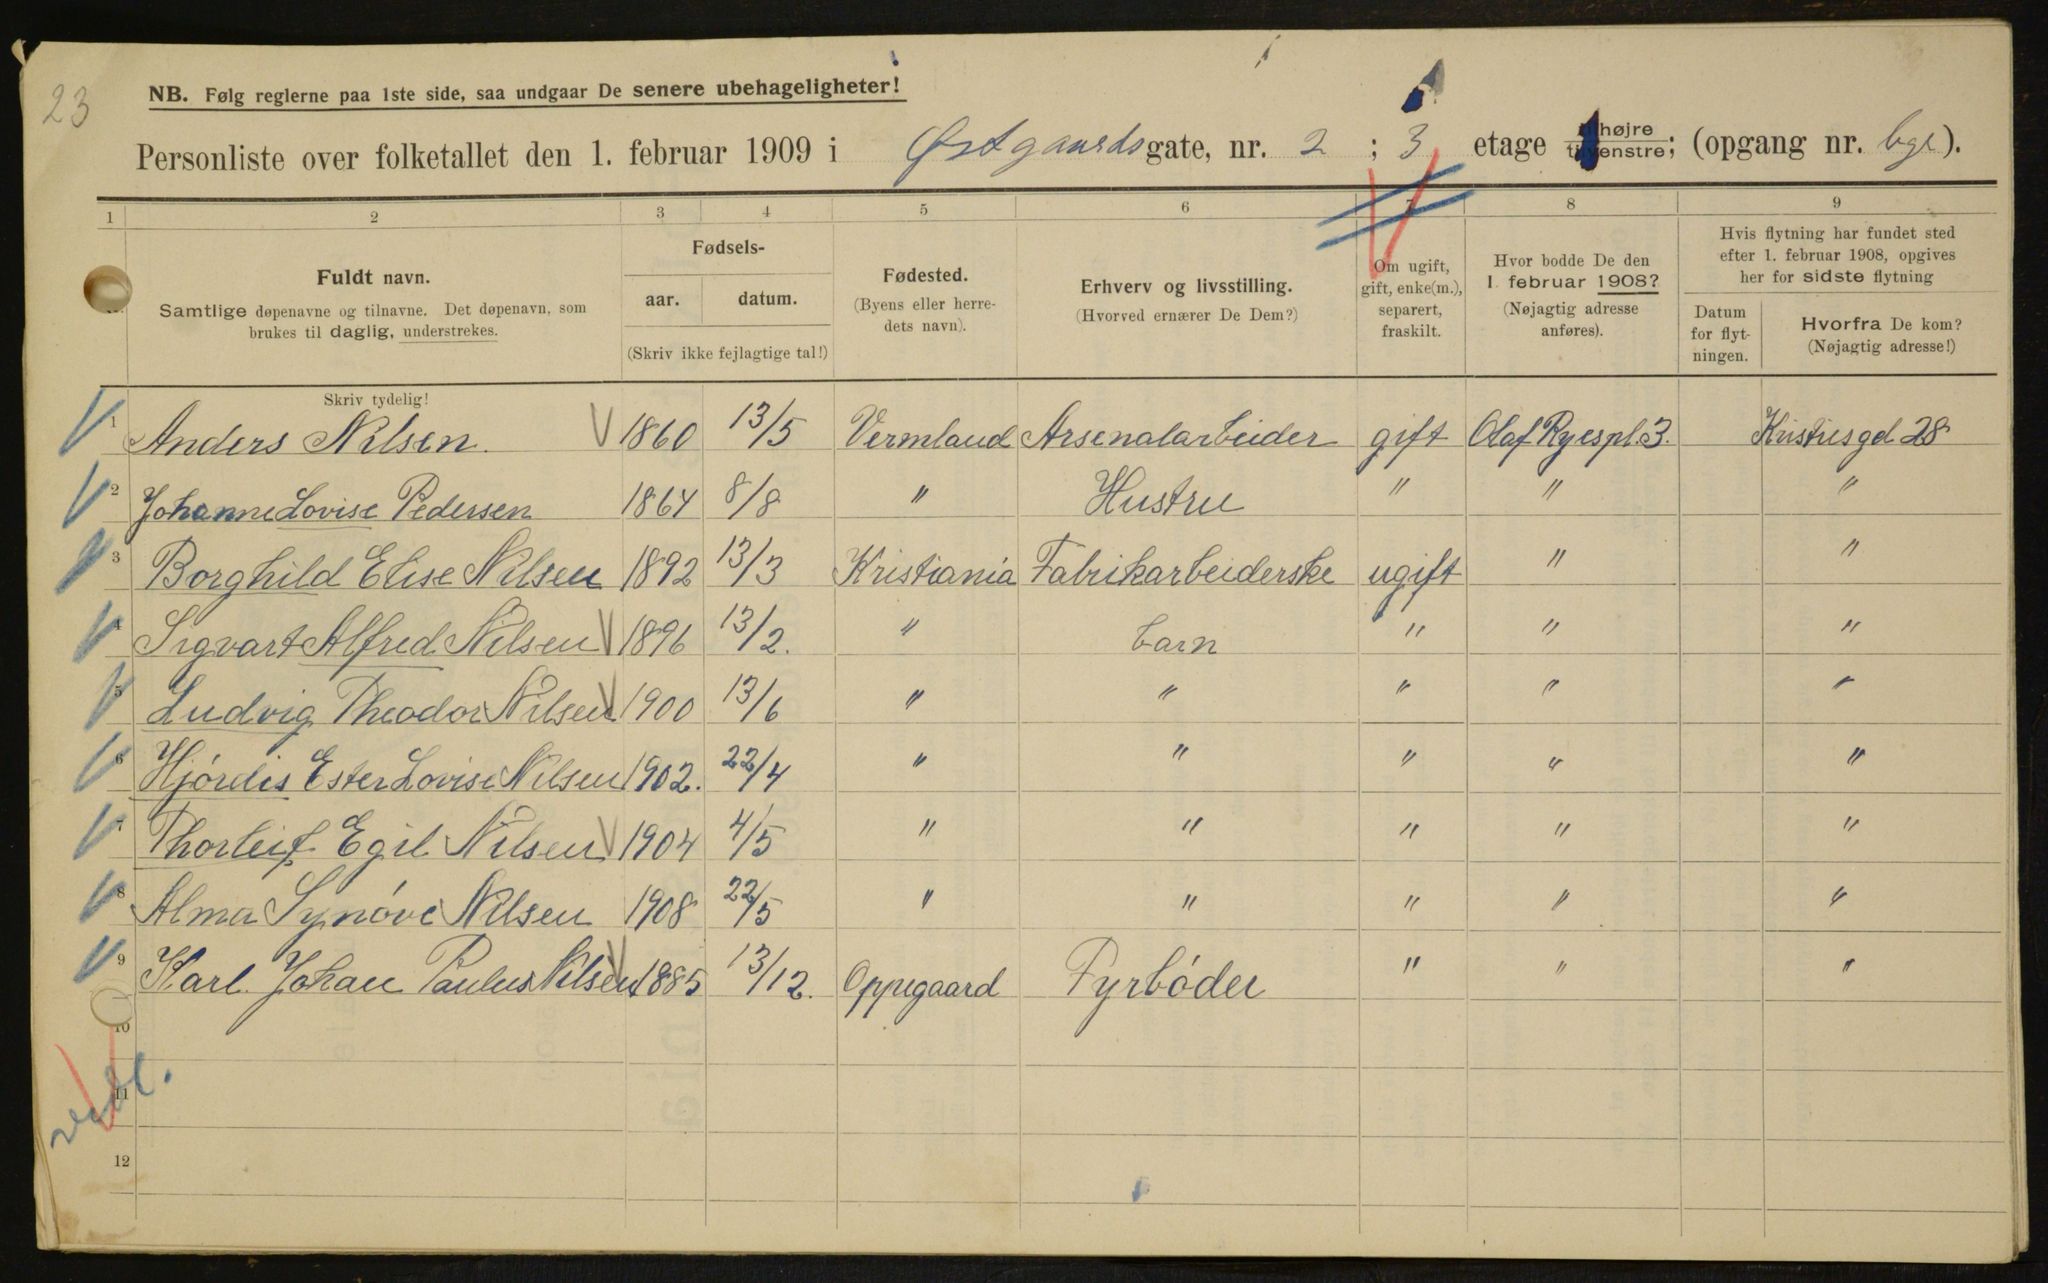 23
NB. Følg reglerne paa 1ste side, saa undgaar De senere ubehageligheter!
Personliste over folketallet den 1. februar 1909 i Østgaardsgate, nr. 2 ; 3 etage (opgang nr. ).
1 2 3 4 5 6 7 8 9
Fuldt navn.
Samtlige døpenavne og tilnavne. Det døpenavn, som
brukes til daglig, understrekes.
Fødsels-
aar. datum.
(Skriv ikke fejlagtige tal!)
Fødested.
(Byens eller herre-
dets navn).
Erhverv og livsstilling.
(Hvorved ernærer De Dem?)
Om ugift,
gift, enke(m.),
separert,
fraskilt.
Hvor bodde De den
1. februar 1908?
(Nøjagtig adresse
anføres).
Hvis flytning har fundet sted
efter 1. februar 1908, opgives
her for sidste flytning
Datum
for flyt-
ningen.
Hvorfra De kom?
(Nøjagtig adresse!)
Skriv tydelig!
1 Anders Nilsen. 1860 13/5 Vermland Arsenalarbeider gift Olaf Ryespl. 3. Kristiesgd 28
2 Johanne Lovise Pedersen 1864 8/8 " Hustru " " "
3 Borghild Elise Nilsen 1892 13/3 Kristiania Fabrikarbeiderske ugift " "
4 Sigvart Alfred Nilsen 1896 13/2. " barn " " "
5 Ludvig Theodor Nilsen 1900 13/6 " " " " "
6 Hjórdis Ester Lovise Nilsen 1902. 22/4 " " " " "
7 Thorleif Egil Nilsen 1904 4/5 " " " " "
8 Alma Synóve Nilsen 1908 22/5 " " " " "
9 Karl Johan Paulus Nilsen 1885 13/12. Oppegaard Fyrbóder " " "
10
11
12